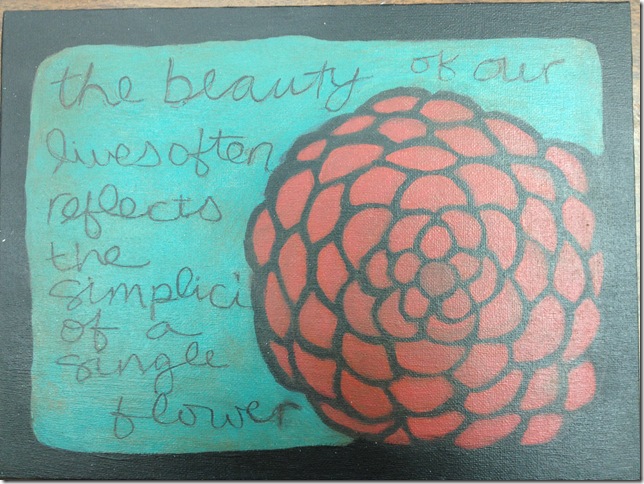 the beauty of our
lives often
reflects
the
simplici
of a
single
flower